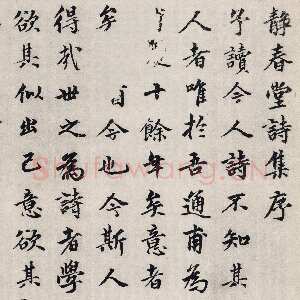 靜春堂詩集序
讀今人詩不知其
人者唯於吾通甫為
十餘年矣意者
矣 今也今斯人
得哉世之為詩者學
欲其似出己意欲其